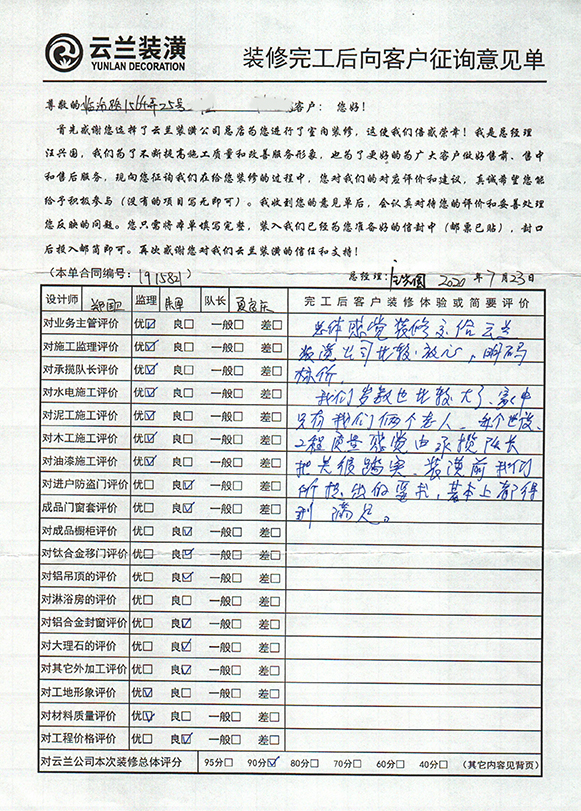 云兰装潢
YUNLAN DECORATION
装修完工后向客户征询意见单
尊敬的临汾路1564弄25号 客户：您好！
首先感谢您选择了云兰装潢公司总店为您进行了室内装修，这使我们倍感荣幸！我是总经理
汪兴国，我们为了不断提高施工质量和改善服务形象，也为了更好的为广大客户做好售前、售中
和售后服务，现向您征询我们在给您装修的过程中，您对我们的对应评价和建议，真诚希望您能
给予积极参与（没有的项目写无即可）。我收到您的意见单后，会认真对待您的评价和妥善处理
您反映的问题。您只需将本单填写完整，装入我们已经为您准备好的信封中（邮票已贴），封口
后投入邮筒即可。再次感谢您对我们云兰装潢的信任和支持！
（本单合同编号：1915821） 总经理：汪兴国 2020年7月23日
设计师 郑卫 监理 队长 完工后客户装修体验或简要评价
对业务主管评价 优☑ 良□ 一般□ 差□ 总体感觉装修交给云兰
对施工监理评价 优☑ 良□ 一般□ 差□ 装潢公司比较放心，明码
对承揽队长评价 优☑ 良□ 一般□ 差□ 标价，
对水电施工评价 优☑ 良□ 一般□ 差□ 我们岁数也比较大了，家中
对泥工施工评价 优☑ 良□ 一般□ 差□ 只有我们俩个老人，
对木工施工评价 优☑ 良□ 一般□ 差□ 工程质量感觉由承揽队长
对油漆施工评价 优☑ 良□ 一般□ 差□ 把关很踏实，装潢前我们
对进户防盗门评价 优□ 良☑ 一般□ 差□ 所提出的要求，基本上都得
成品门窗套评价 优□ 良☑ 一般□ 差□ 到满足。
对成品橱柜评价 优□ 良☑ 一般□ 差□
对钛合金移门评价 优□ 良☑ 一般□ 差□
对铝吊顶的评价 优□ 良☑ 一般□ 差□
对淋浴房的评价 优□ 良□ 一般□ 差□
对铝合金封窗评价 优□ 良☑ 一般□ 差□
对大理石的评价 优□ 良☑ 一般□ 差□
对其它外加工评价 优□ 良☑ 一般□ 差□
对工地形象评价 优☑ 良□ 一般□ 差□
对材料质量评价 优☑ 良□ 一般□ 差□
对工程价格评价 优□ 良☑ 一般□ 差□
对云兰公司本次装修总体评分 95分□ 90分☑ 80分□ 70分□ 60分□ 40分□ （其它内容见背页）